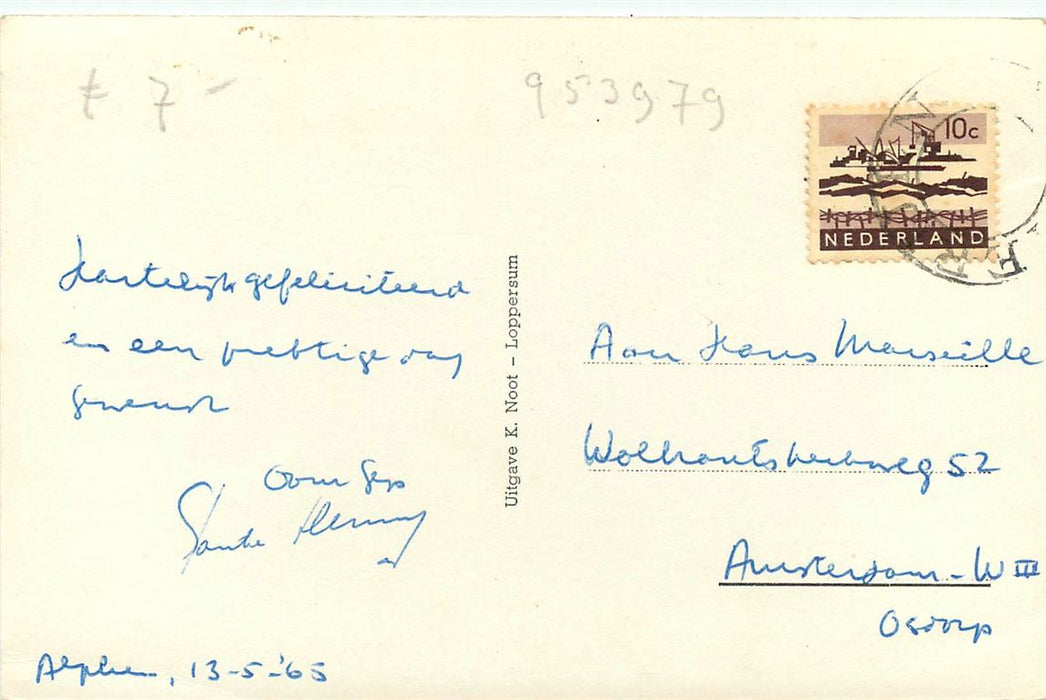 £ 7 -
953979
10c
NEDERLAND
Hartelijk gefeliciteerd
en een prettige dag
gewenst
Oom Gijs
Tante Henny
Alphen, 13-5-'65
Uitgave K. Noot – Loppersum
Aan Hans Marseille
52
Amsterdam - W III
Osdorp